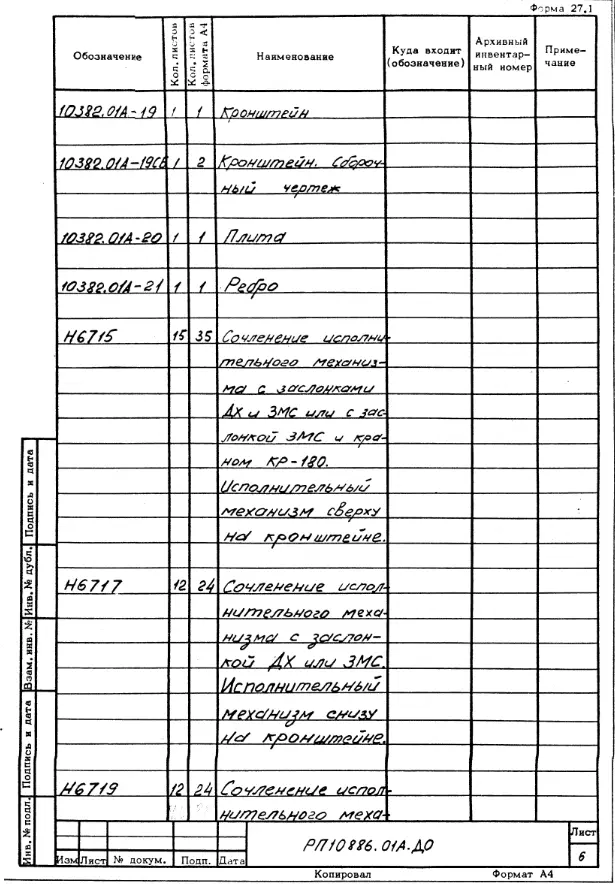 Форма 27.1
Обозначение | Кол. листов | Кол. листов формата А4 | Наименование | Куда входит (обозначение) | Архивный инвентарный номер | Примечание
10382.01А-19 1 1 Кронштейн
10382.01А-19СБ 1 2 Кронштейн. Сбороч-
ный чертеж
10382.01А-20 1 1 Плита
10382.01А-21 1 1 Ребро
Н6715 15 35 Сочленение исполни-
тельного механиз-
ма с заслонками
ДХ и ЗМС или с зас-
лонкой ЗМС и кра-
ном КР-180.
Исполнительный
механизм сверху
на кронштейне.
Н6717 12 24 Сочленение испол-
нительного меха-
низма с заслон-
кой ДХ или ЗМС.
Исполнительный
механизм снизу
на кронштейне.
Н6719 12 24 Сочленение испол-
нительного меха-
Инв. № подл. Подпись и дата Взам. инв. № Инв. № дубл. Подпись и дата
Изм Лист № докум. Подп. Дата
РП10886.01А.ДО
Лист
6
Копировал Формат А4